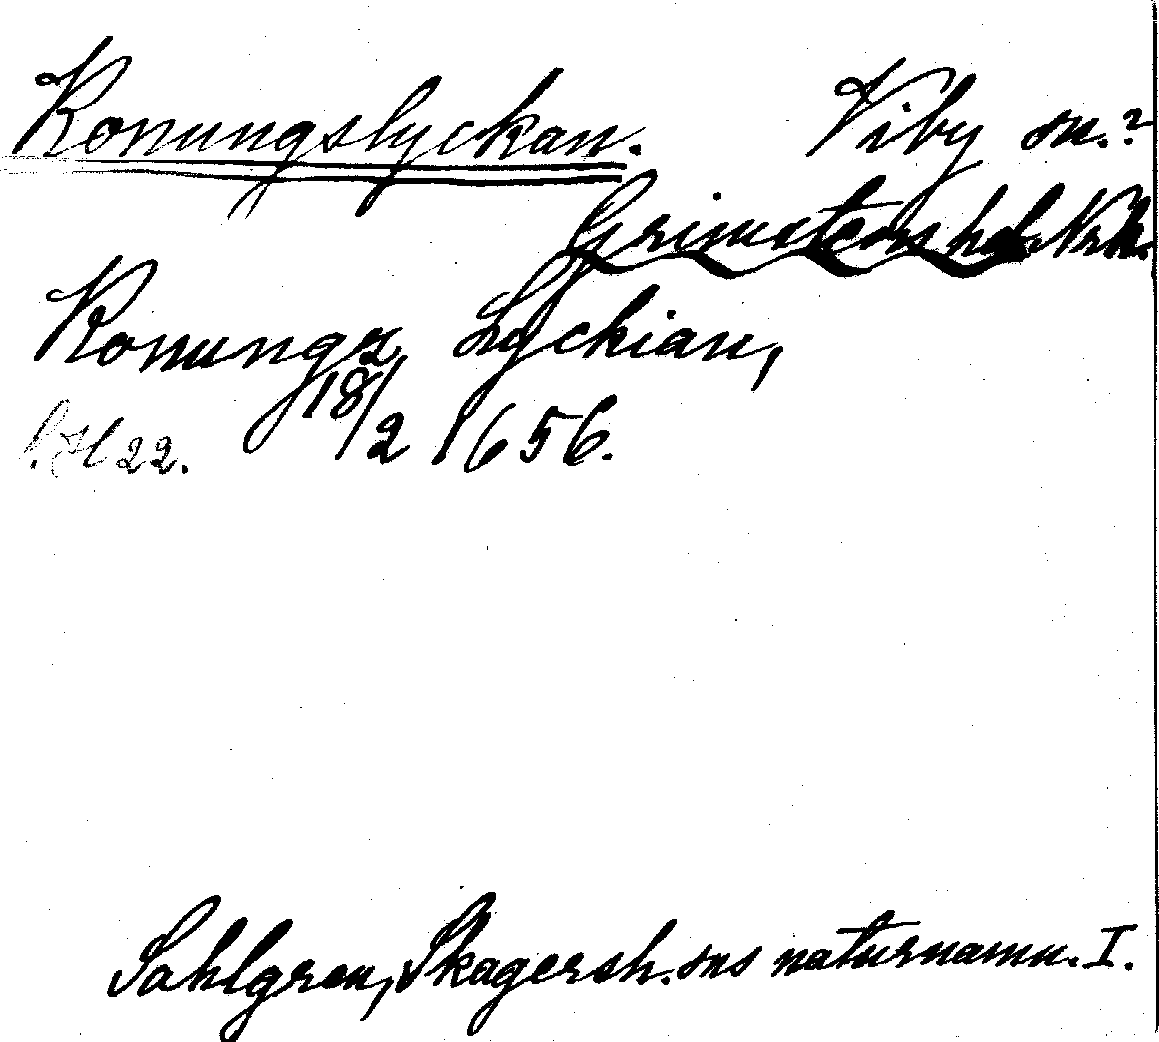 Konungslyckan. Viby sn.?
Grimstens hd. Nrk.
Konungz Lyckian,
18/2 1656.
22.
Sahlgren, Skagersh. sns naturnamn. I.